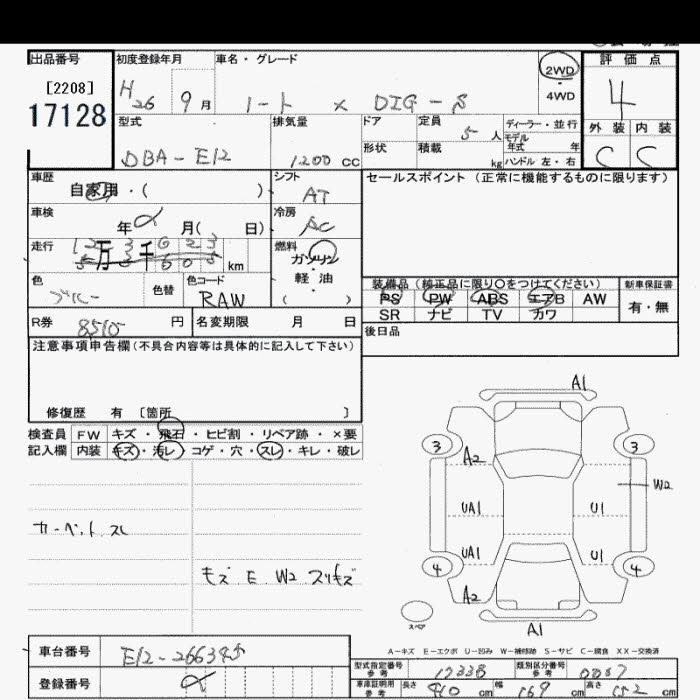 出品番号 初度登録年月 車名・グレード 2WD 評価点
[2208] H26 9月 ノート X DIG-S ・4WD 4
17128 型式 排気量 ドア 定員 5人 ディーラー・並行 外装 内装
DBA-E12 1200 cc 形状 積載 kg モデル年式 年 ハンドル 左・右 C C
車歴 自家用・( ) シフト AT セールスポイント (正常に機能するものに限ります)
車検 年 月( 日) 冷房 AC
走行 万 千 km 燃料 ガソリン・軽油
色 ブルー 色替 色コード RAW 装備品 (純正品に限り○をつけてください) 新車保証書
PS PW ABS エアB AW 有・無
SR ナビ TV カワ
R券 8510 円 名変期限 月 日 後日品
注意事項申告欄 (不具合内容等は具体的に記入して下さい)
修復歴 有 〔箇所 〕
検査員 FW キズ・飛石・ヒビ割・リペア跡・×要
記入欄 内装 キズ・汚レ・コゲ・穴・スレ・キレ・破レ
A1
3 3
A2
W2
UA1 U1
UA1 U1
4 4
A2
スペア
A1
カーペット スレ
キズ E W2 スリキズ
A－キズ E－エクボ U－凹み W－補修跡 S－サビ C－腐食 XX－交換済
車台番号 E12-266345
登録番号
型式指定番号 参考 17338 類別区分番号 参考 0087
車庫証明用 参考 長さ 410 cm 幅 169 cm 高さ 152 cm